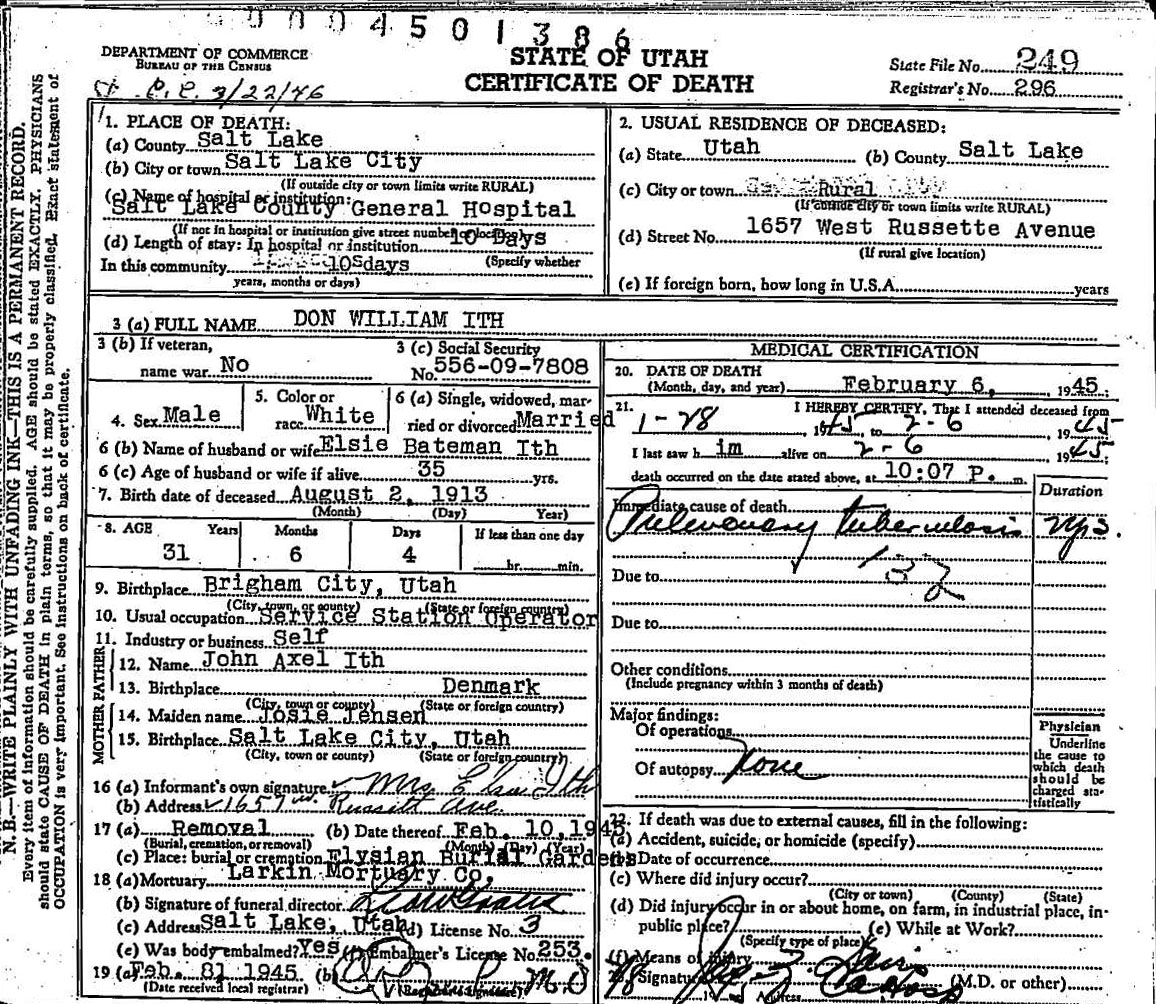 0004501386
DEPARTMENT OF COMMERCE
BUREAU OF THE CENSUS
STATE OF UTAH
CERTIFICATE OF DEATH
State File No. 249
Registrar's No. 296
3/22/46
N. B.—WRITE PLAINLY WITH UNFADING INK—THIS IS A PERMANENT RECORD.
Every item of information should be carefully supplied. AGE should be stated EXACTLY. PHYSICIANS
should state CAUSE OF DEATH in plain terms, so that it may be properly classified. Exact statement of
OCCUPATION is very important. See instructions on back of certificate.
1. PLACE OF DEATH:
(a) County Salt Lake
(b) City or town Salt Lake City
(If outside city or town limits write RURAL)
(c) Name of hospital or institution:
Salt Lake County General Hospital
(If not in hospital or institution give street number or location)
(d) Length of stay: In hospital or institution 10 Days
(Specify whether
In this community 10 days
years, months or days)
2. USUAL RESIDENCE OF DECEASED:
(a) State Utah (b) County Salt Lake
(c) City or town Rural
(If outside city or town limits write RURAL)
(d) Street No. 1657 West Russette Avenue
(If rural give location)
(e) If foreign born, how long in U.S.A. years
3 (a) FULL NAME DON WILLIAM ITH
3 (b) If veteran,
name war No
3 (c) Social Security
No. 556-09-7808
4. Sex Male
5. Color or
race White
6 (a) Single, widowed, mar-
ried or divorced Married
6 (b) Name of husband or wife Elsie Bateman Ith
6 (c) Age of husband or wife if alive 35 yrs.
7. Birth date of deceased August 2, 1913
(Month) (Day) Year)
8. AGE Years Months Days If less than one day
31 6 4 hr. min.
9. Birthplace Brigham City, Utah
(City, town, or county) (State or foreign country)
10. Usual occupation Service Station Operator
11. Industry or business Self
FATHER
12. Name John Axel Ith
13. Birthplace Denmark
(City, town or county) (State or foreign country)
MOTHER
14. Maiden name Josie Jensen
15. Birthplace Salt Lake City, Utah
(City, town or county) (State or foreign country)
16 (a) Informant's own signature Mrs Elsie Ith
(b) Address 1657 W. Russett Ave
17 (a) Removal (b) Date thereof Feb. 10, 1945
(Burial, cremation, or removal) (Month) (Day) (Year)
(c) Place: burial or cremation Elysian Burial Gardens
18 (a) Mortuary Larkin Mortuary Co.
(b) Signature of funeral director
(c) Address Salt Lake, Utah (d) License No. 3
(e) Was body embalmed? Yes (f) Embalmer's License No. 253.
19 (a) Feb. 81 1945 (b) M.D
(Date received local registrar) (Registrar's signature)
MEDICAL CERTIFICATION
20. DATE OF DEATH
(Month, day, and year) February 6, 1945.
21. I HEREBY CERTIFY, That I attended deceased from
1-28 1945 to 2-6, 1945
I last saw h im alive on 2-6 1945.
death occurred on the date stated above, at 10:07 P. m.
Duration
Immediate cause of death
Pulmonary tuberculosis yrs.
Due to
Due to
Other conditions
(Include pregnancy within 3 months of death)
Major findings:
Of operations
Of autopsy None
Physician
Underline
the cause to
which death
should be
charged sta-
tistically
22. If death was due to external causes, fill in the following:
(a) Accident, suicide, or homicide (specify)
(b) Date of occurrence
(c) Where did injury occur?
(City or town) (County) (State)
(d) Did injury occur in or about home, on farm, in industrial place, in-
public place? (e) While at Work?
(Specify type of place)
(f) Means of injury
Signature (M.D. or other)
Address